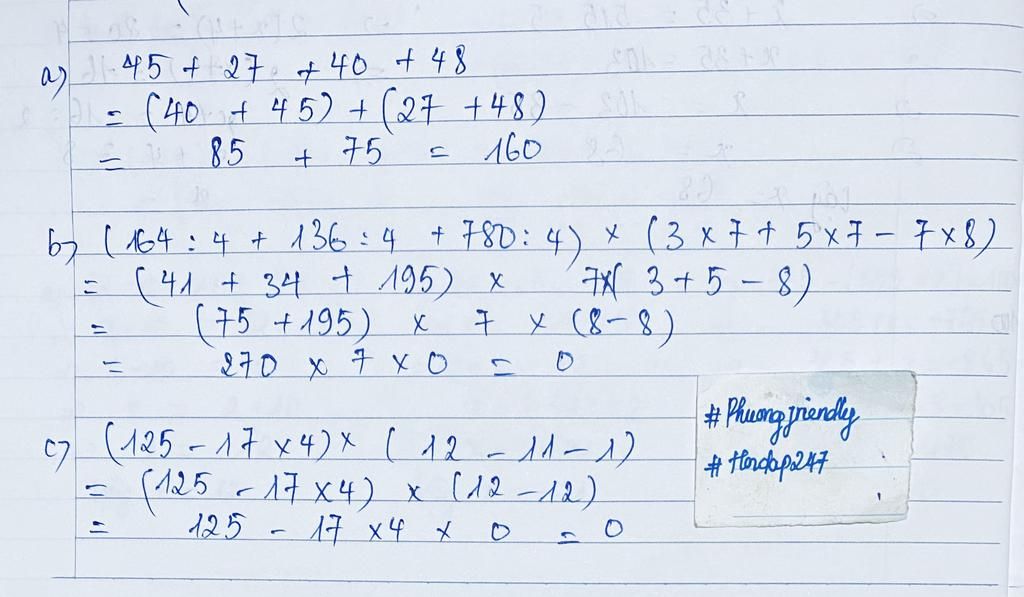 a) 45 + 27 + 40 + 48
= (40 + 45) + (27 + 48)
= 85 + 75 = 160
b) (164 : 4 + 136 : 4 + 780 : 4) × (3 × 7 + 5 × 7 - 7 × 8)
= (41 + 34 + 195) × 7×( 3 + 5 - 8)
= (75 + 195) × 7 × (8 - 8)
= 270 × 7 × 0 = 0
c) (125 - 17 × 4) × ( 12 - 11 - 1)
= (125 - 17 × 4) × (12 - 12)
= 125 - 17 × 4 × 0 = 0
#Phuongfriendly
#Hoidap247